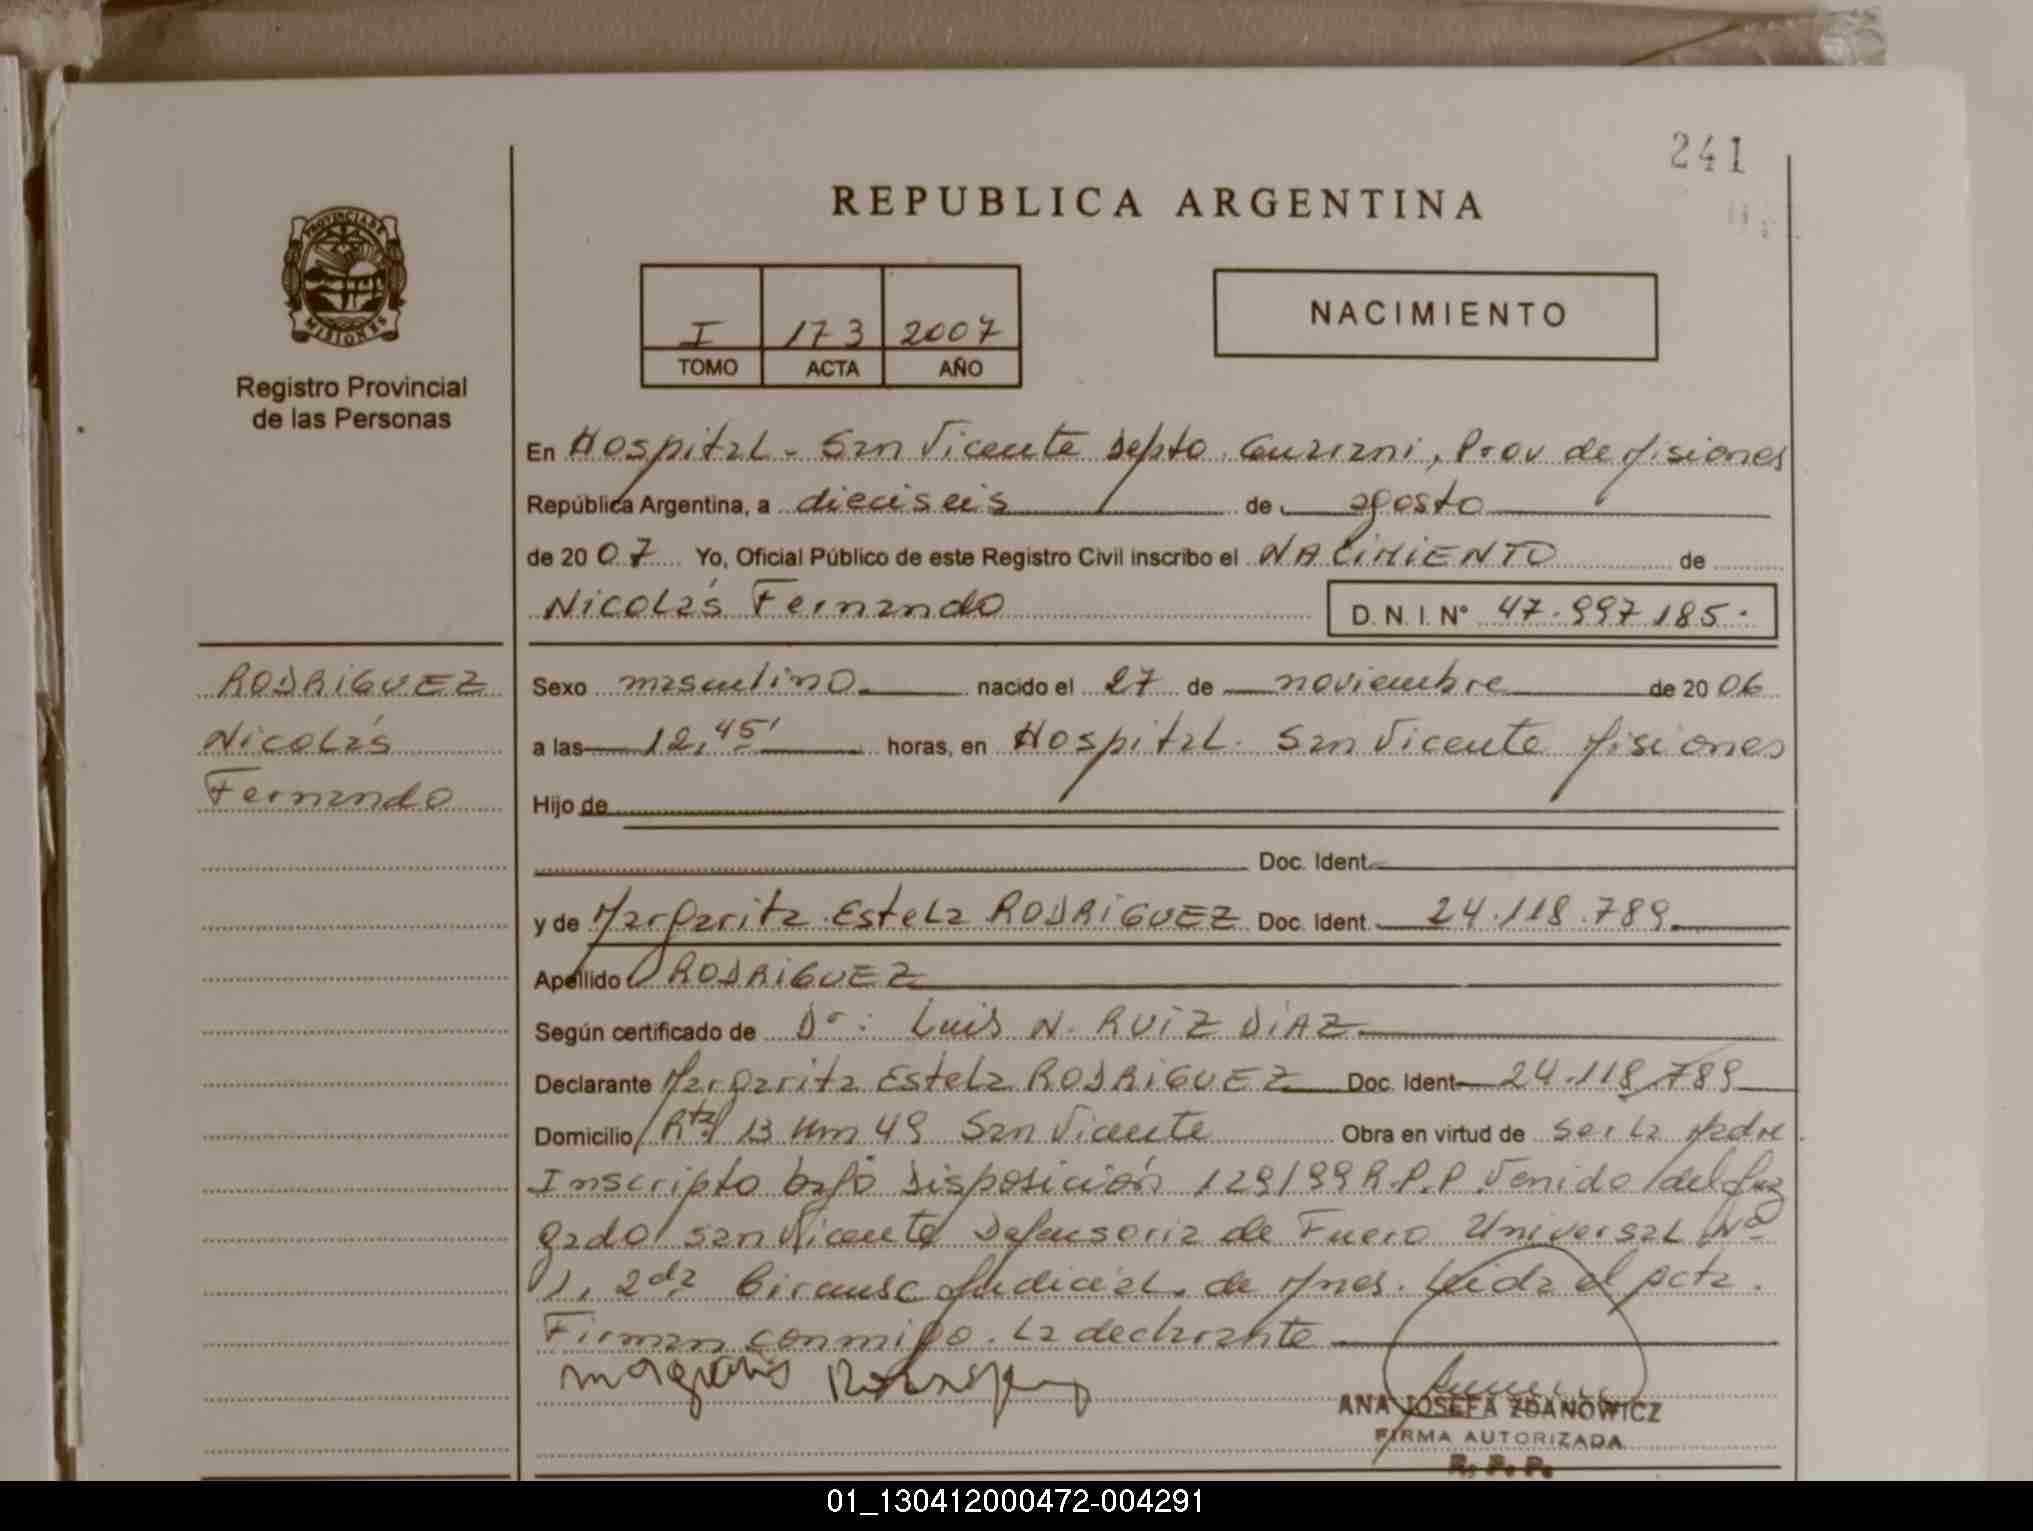 241
REPUBLICA ARGENTINA
PROVINCIA DE
MISIONES
Registro Provincial
de las Personas
I 173 2007
TOMO ACTA AÑO
NACIMIENTO
En Hospital - San Vicente Depto. Guarani, Prov de Misiones
República Argentina, a dieciseis de agosto
de 2007 Yo, Oficial Público de este Registro Civil inscribo el NACIMIENTO de
Nicolás Fernando D. N. I. N° 47.997.185.
RODRIGUEZ
Nicolás
Fernando
Sexo masculino nacido el 27 de noviembre de 2006
a las 12,45' horas, en Hospital. San Vicente Misiones
Hijo de
Doc. Ident.
y de Margarita Estela RODRIGUEZ Doc. Ident. 24.118.789
Apellido RODRIGUEZ
Según certificado de Dr: Luis N. RUIZ DIAZ
Declarante Margarita Estela RODRIGUEZ Doc. Ident 24.118.789
Domicilio Rta 13 Km 49 San Vicente Obra en virtud de ser la Madre
Inscripto bajo Disposición 129/99 R.P.P. Venido del Juz
gado San Vicente Defensoria de Fuero Universal Nº
1, 2da Circunsc Judicial. de Mnes. Leida el acta.
Firman conmigo. La declarante
ANA JOSEFA ZDANOWICZ
FIRMA AUTORIZADA
R. P. P.
01_130412000472-004291